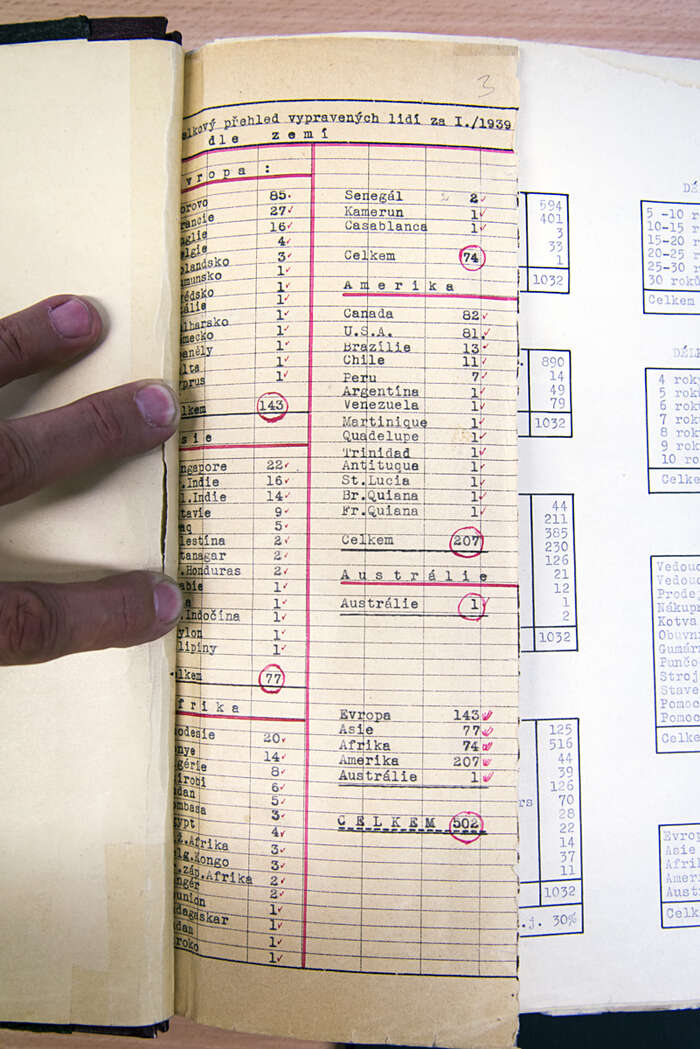 3
elkový přehled vypravených lidí za I./1939
dle zemí
vropa :
orovo 85
rancie 27
nglie 16
elgie 4
olandsko 3
umunsko 1
védsko 1
tálie 1
ulharsko 1
ěmecko 1
paněly 1
alta 1
yprus 1
elkem 143
sie
ingapore 22
.Indie 16
l.Indie 14
tavie 9
aq 5
lestina 2
tanagar 2
.Honduras 2
abie 1
a 1
.Indočína 1
ylon 1
lipiny 1
elkem 77
frika
odesie 20
enye 14
gérie 8
irobi 6
udan 5
ombasa 3
gypt 4
ž.Afrika 3
lg.Kongo 3
.záp.Afrika 2
ngér 2
union 1
adagaskar 1
dam 1
roko 1
Senegál 2
Kamerun 1
Casablanca 1
Celkem 74
Amerika
Canada 82
U.S.A. 81
Brazílie 13
Chile 11
Peru 7
Argentina 1
Venezuela 1
Martinique 1
Quadelupe 1
Trinidad 1
Antituque 1
St.Lucia 1
Br.Quiana 1
Fr.Quiana 1
Celkem 207
Austrálie
Austrálie 1
Evropa 143
Asie 77
Afrika 74
Amerika 207
Austrálie 1
CELKEM 502
594
401
3
33
1
1032
890
14
49
79
1032
44
211
385
230
126
21
12
1
2
1032
125
516
44
39
126
rs 70
28
22
14
37
11
1032
.j. 30%
DÉ
5 -10 r
10-15 r
15-20 r
20-25 r
25-30 r
30 roků
Celkem
DÉL
4 rok
5 rok
6 rok
7 rok
8 rok
9 rok
10 ro
Celke
Vedouc
Vedou
Prodej
Nákupn
Kotva
Obuvní
Gumár
Punčo
Stroj
Stave
Pomoc
Pomoc
Celke
Evrop
Asie
Afrik
Ameri
Aust
Celk